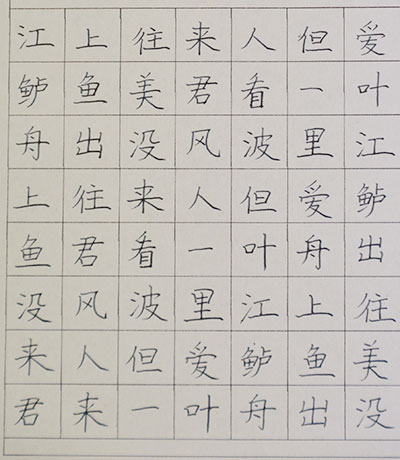 江上往来人但爱
鲈鱼美君看一叶
舟出没风波里江
上往来人但爱鲈
鱼君看一叶舟出
没风波里江上往
来人但爱鲈鱼美
君来一叶舟出没